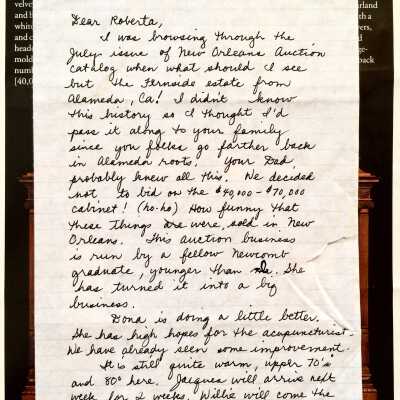 velve
and c
white
and c
heade
mold
numb
[40,0
rland
and
ith a
vers,
ge-
back
Dear Roberta,
I was browsing through the
July issue of New Orleans Auction
catalog when what should I see
but the Fernside estate from
Alameda, Ca! I didn't know
this history so I thought I'd
pass it along to your family
since you folks go farther back
in Alameda roots. Your Dad,
probably knew all this. We decided
not to bid on the $40,000-$70,000
cabinet! (ho-ho) How funny that
these things were sold in New
Orleans. This auction business
is run by a fellow Newcomb
graduate, younger than . She
has turned it into a big
business.
Dona is doing a little better.
She has high hopes for the acupuncturist.
We have already seen some improvement.
It's still quite warm, upper 70's
and 80° here. Jacques will arrive next
week for 2 weeks. Willie will come the